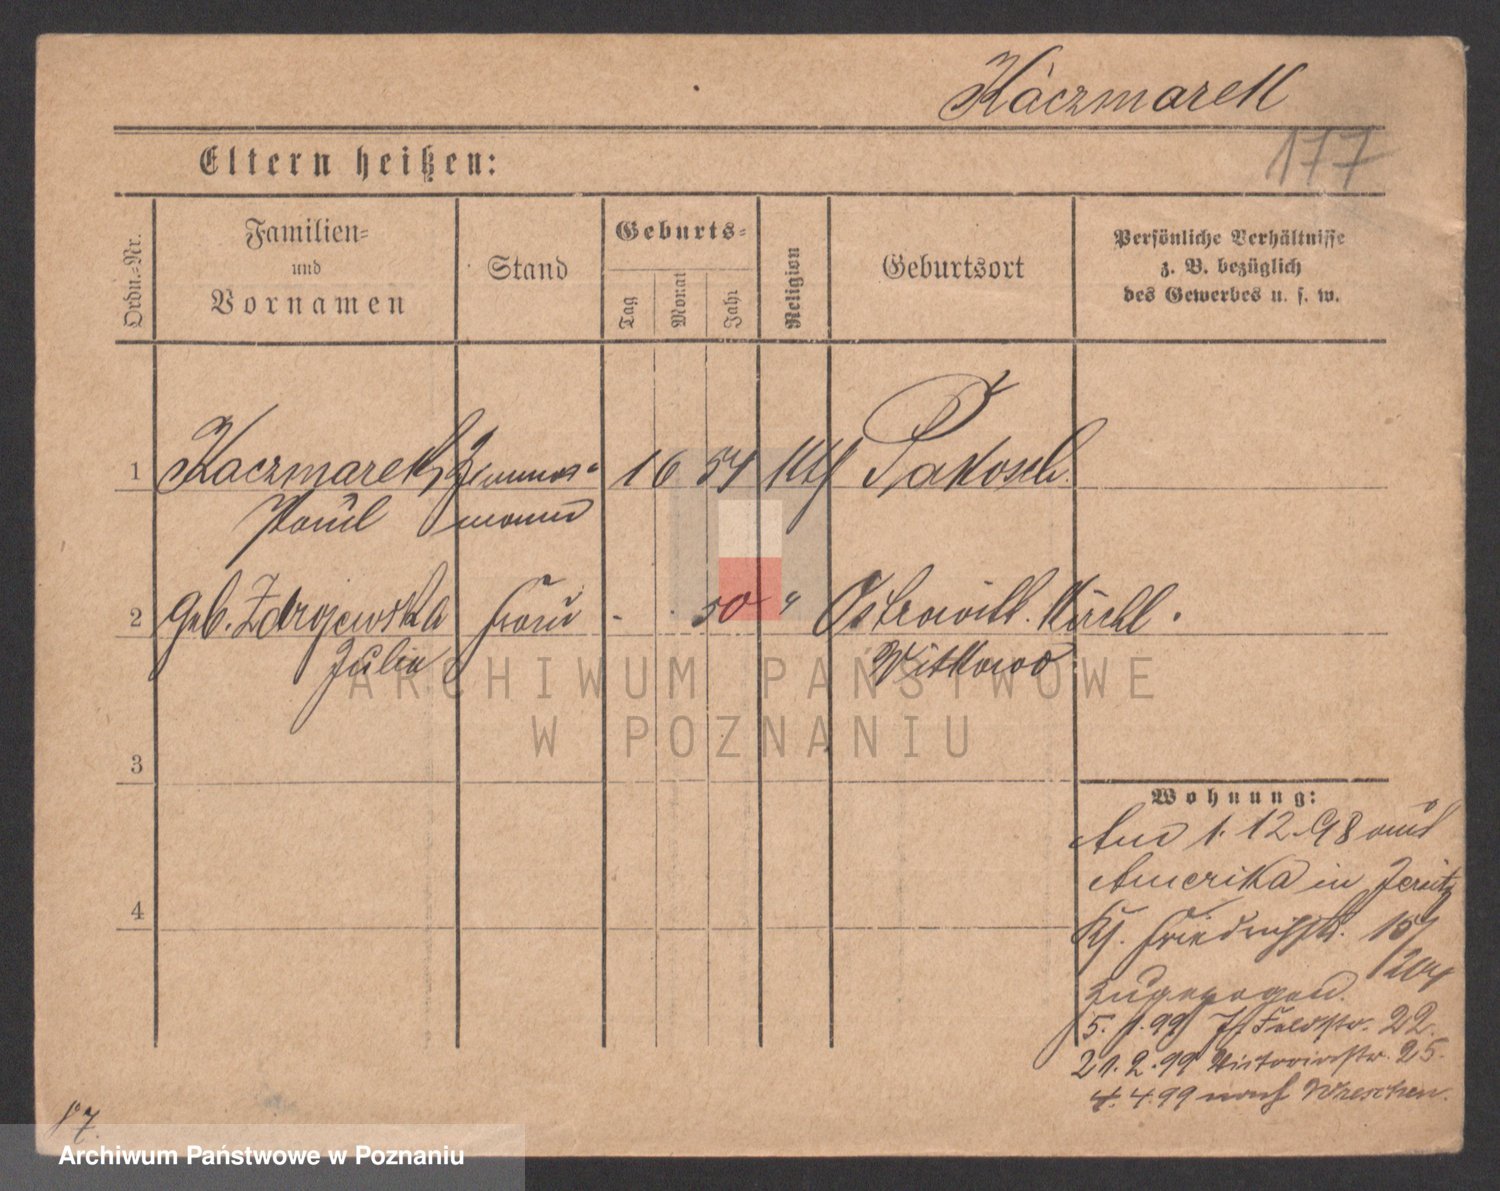 Kaczmarek
177
Eltern heißen:
Ordn.-Nr.
Familien-
und
Vornamen
Stand
Geburts-
Tag
Monat
Jahr
Religion
Geburtsort
Persönliche Verhältnisse
z. B. bezüglich
des Gewerbes u. s. w.
1 Kaczmarek, Zimmer- 1 6 54 kth Pakosch.
Paul mann
2 geb. Zdrojewska Frau - . 50 " Ostrowitt. Kirchl.
Julia Witkowo
3
4
Wohnung:
Am 1. 12. 98 aus
Amerika in Jersitz
Kf. Friedrichstr. 15/
zugezogen.
5. 1. 99 Jf. Feldstr. 22.
21. 2. 99 Victoriastr. 25.
4. 4. 99 nach Wreschen.
ARCHIWUM PAŃSTWOWE
W POZNANIU
Archiwum Państwowe w Poznaniu